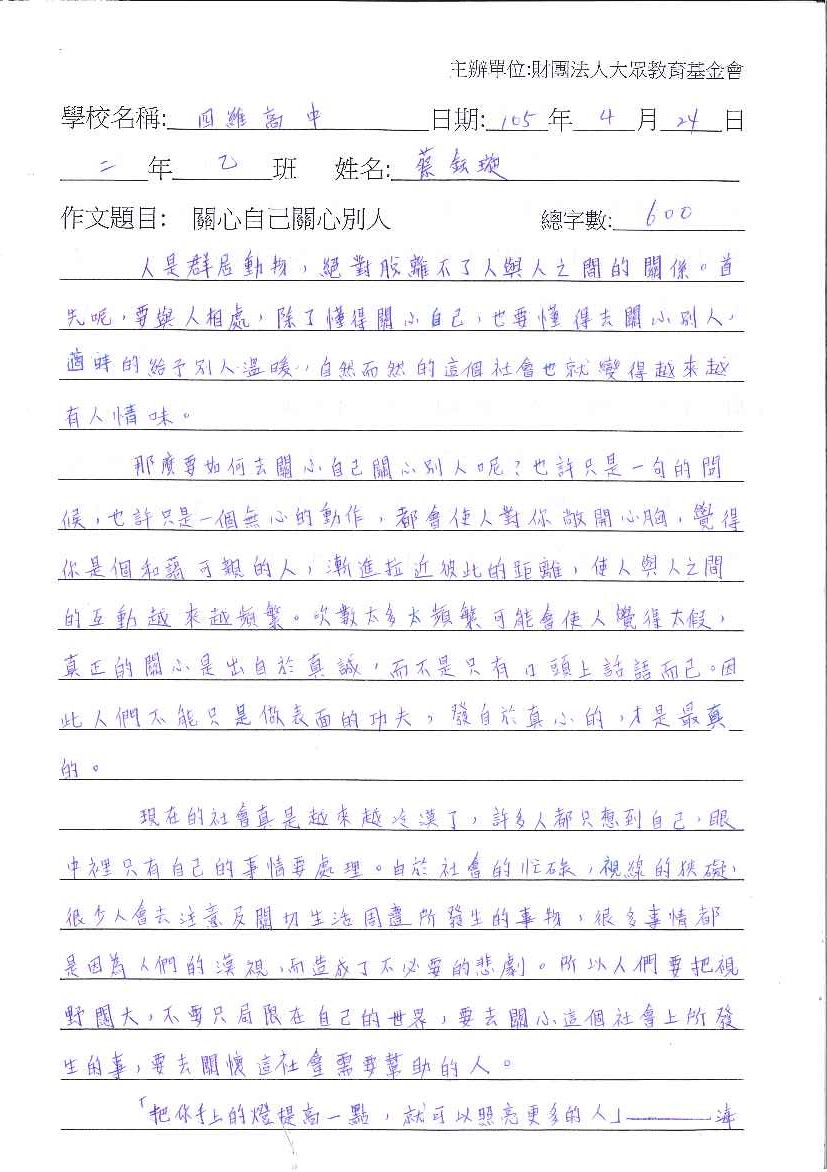 主辦單位:財團法人大眾教育基金會
學校名稱: 四維高中 日期: 105 年 4 月 24 日
二 年 乙 班 姓名: 蔡鈺璇
作文題目: 關心自己關心別人 總字數: 600
人是群居動物，絕對脫離不了人與人之間的關係。首
先呢，要與人相處，除了懂得關心自己，也要懂得去關心別人，
適時的給予別人溫暖，自然而然的這個社會也就變得越來越
有人情味。
那麼要如何去關心自己關心別人呢？也許只是一句的問
候，也許只是一個無心的動作，都會使人對你敞開心胸，覺得
你是個和藹可親的人，漸進拉近彼此的距離，使人與人之間
的互動越來越頻繁。次數太多太頻繁可能會使人覺得太假，
真正的關心是出自於真誠，而不是只有口頭上話語而已。因
此人們不能只是做表面的功夫，發自於真心的，才是最真
的。
現在的社會真是越來越冷漠了，許多人都只想到自己，眼
中裡只有自己的事情要處理。由於社會的忙碌，視線的狹礙，
很少人會去注意及關切生活周遭所發生的事物，很多事情都
是因為人們的漠視，而造成了不必要的悲劇。所以人們要把視
野闊大，不要只局限在自己的世界，要去關心這個社會上所發
生的事，要去關懷這社會需要幫助的人。
「把你手上的燈提高一點，就可以照亮更多的人」———海